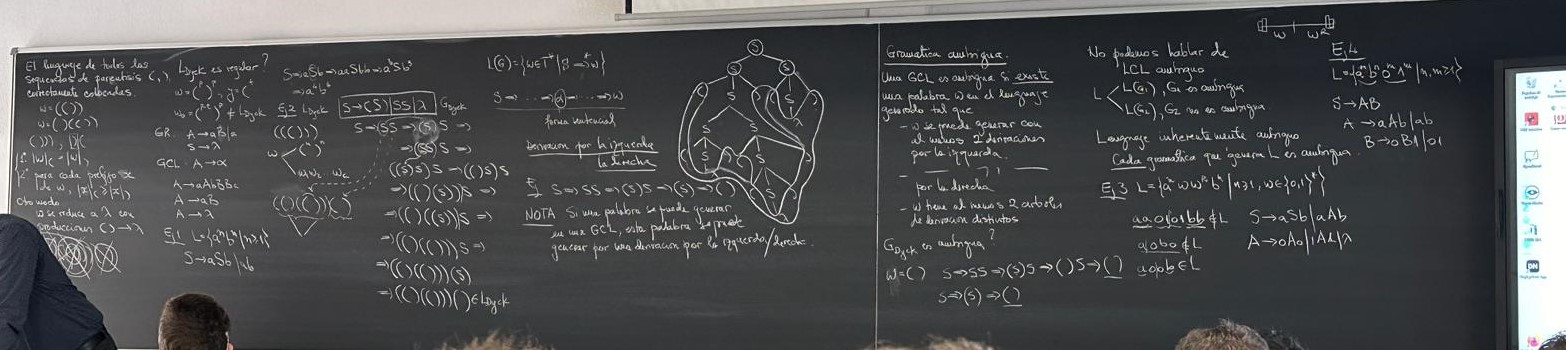 El lenguaje de todas las
secuencias de parentisis (,),
correctamente colocadas.
w=(())
w=()(())
())),  )()(
1º |w|( = |w|)
2º para cada prefijo x
de w, |x|( ≥ |x|)
Otro modo
w se reduce a λ con
produccion ()→λ
LDyck es regular?
∉ LDyck
GR. A→aB|a
S→λ
GCL. A→α
A→aAbBBc
A→aB
A→λ
Ej.1 L={aⁿbⁿ|n≥1}
S→aSb|ab
S⇒aSb⇒aaSbb⇒
Ej.2 LDyck
S→(S)|SS|λ GDyck
S⇒(SS
((S)S)S ⇒(()S)S
⇒(()(S))S
⇒(()((S)))S ⇒
⇒(()(()))S ⇒
⇒(()(()))(S)
⇒(()(()))()∈LDyck
L(G)={w∈T*|S⇒*w}
S⇒ ... ⇒α⇒ ... ⇒w
forma sentencial
Derivacion por la izquierda
la derecha
Ej S⇒SS⇒(S)S⇒(S)⇒()
NOTA Si una palabra se puede generar
en una GCL, esta palabra se puede
generar por una derivacion por la izquierda/derecha.
Gramatica ambigua.
Una GCL es ambigua si existe
una palabra w en el lenguaje
generado tal que
- w se puede generar con
al menos 2 derivaciones
por la izquierda.
por la derecha
- w tiene al menos 2 arboles
de derivacion distintos
GDyck es ambigua?
w=() S⇒SS⇒(S)S⇒()S⇒()
S⇒(S)⇒()
No podemos hablar de
LCL ambiguo
L(G₁), G₁ es ambigua
L
L(G₂), G₂ no es ambigua
Lenguaje inherentemente ambiguo
Cada gramatica que genera L es ambigua.
Ej.3 L={aⁿwwᴿbⁿ|n≥1, w∈{0,1}*}
∉L S→aSb|aAb
a0b0∉L A→0A0|1A1|λ
∈L
w wᴿ
Ej.4
L={aⁿbⁿ0ᵐ1ᵐ|n,m≥1}
S→AB
A→aAb|ab
B→0B1|01